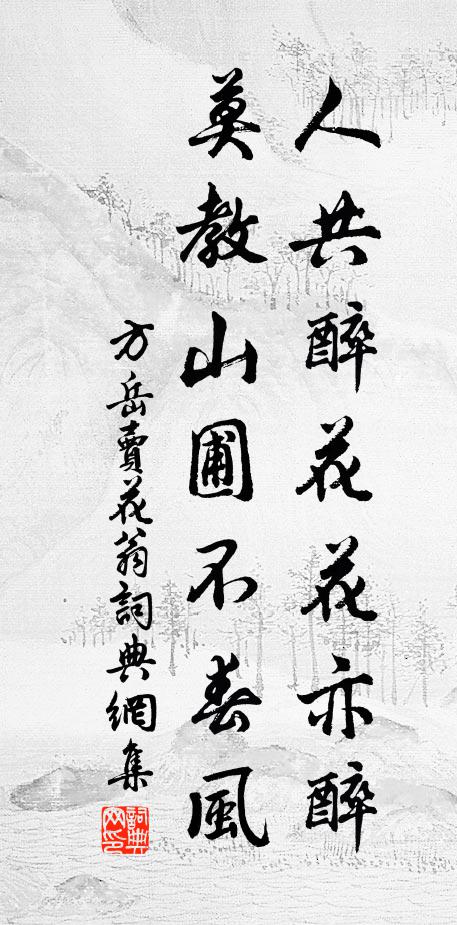 人共醉花花亦醉
莫教山圃不春風
方岳賣花翁詞典網集
詞典网印